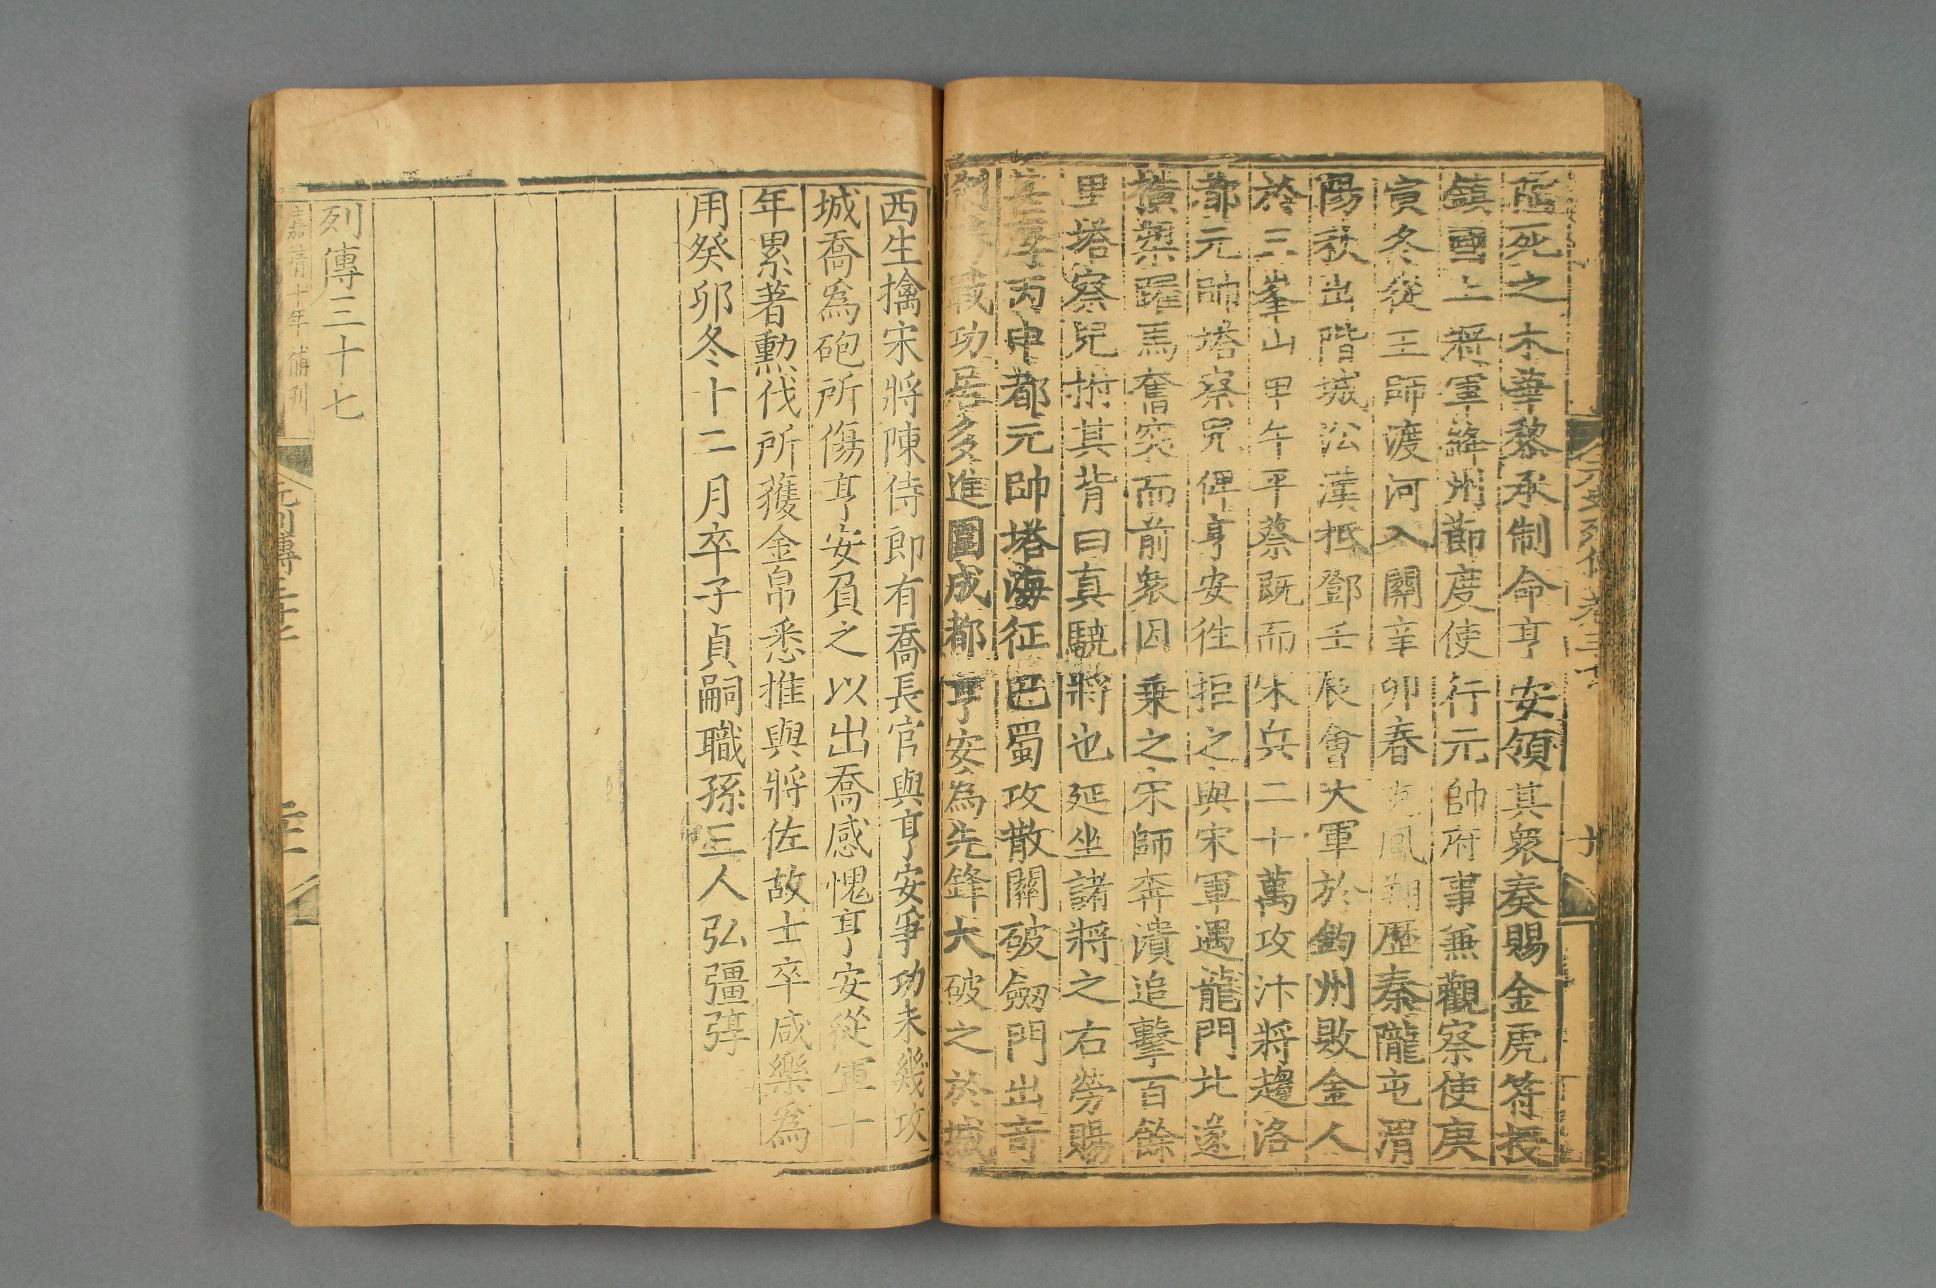 死之木華黎承制命亨安領其衆奏賜金虎符授
鎮國上將軍絳州節度使行元帥府事兼觀察使庚
寅冬從王師渡河入關辛卯春克鳳翔歷秦隴屯渭
陽秋出階城沿漢抵鄧壬辰會大軍於鈞州敗金人
於三峯山甲午平蔡既而宋兵二十萬攻汴將趨洛
都元帥塔察兒俾亨安往拒之與宋軍遇龍門北遂
橫槊躍馬奮突而前衆因乘之宋師奔潰追擊百餘
里塔察兒拊其背曰真驍將也延坐諸將之右勞賜
甚厚丙申都元帥塔海征巴蜀攻散關破劒門出奇
制勝戰功居多進圍成都亨安爲先鋒大破之於城
西生擒宋將陳侍郎有喬長官與亨安爭功未幾攻
城喬爲砲所傷亨安負之以出喬感愧亨安從軍十
年累著勲伐所獲金帛悉推與將佐故士卒咸樂爲
用癸卯冬十二月卒子貞嗣職孫三人弘彊弴
列傳三十七
嘉靖十年補刊
元列傳三十七